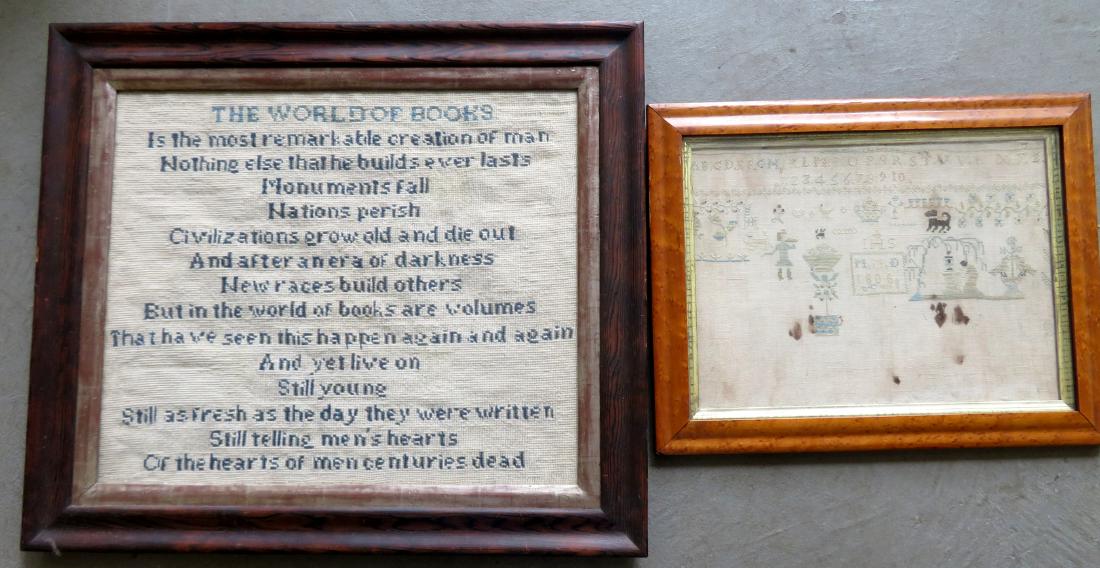 THE WORLD OF BOOKS
Is the most remarkable creation of man
Nothing else that he builds ever lasts
Monuments fall
Nations perish
Civilizations grow old and die out
And after an era of darkness
New races build others
But in the world of books are volumes
That have seen this happen again and again
And yet live on
Still young
Still as fresh as the day they were written
Still telling men's hearts
Of the hearts of men centuries dead
IHS